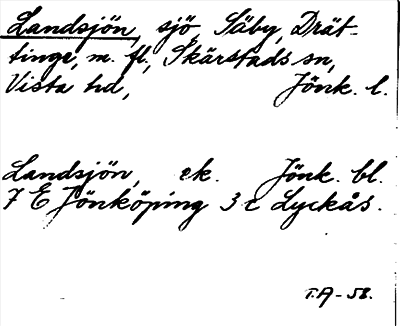 Landsjön, sjö, Säby, Drät-
tinge, m. fl., Skärstads sn,
Vista hd, Jönk. l.
Landsjön, ek. Jönk. bl.
7 E Jönköping 3 c Lyckås.
T.A-58.